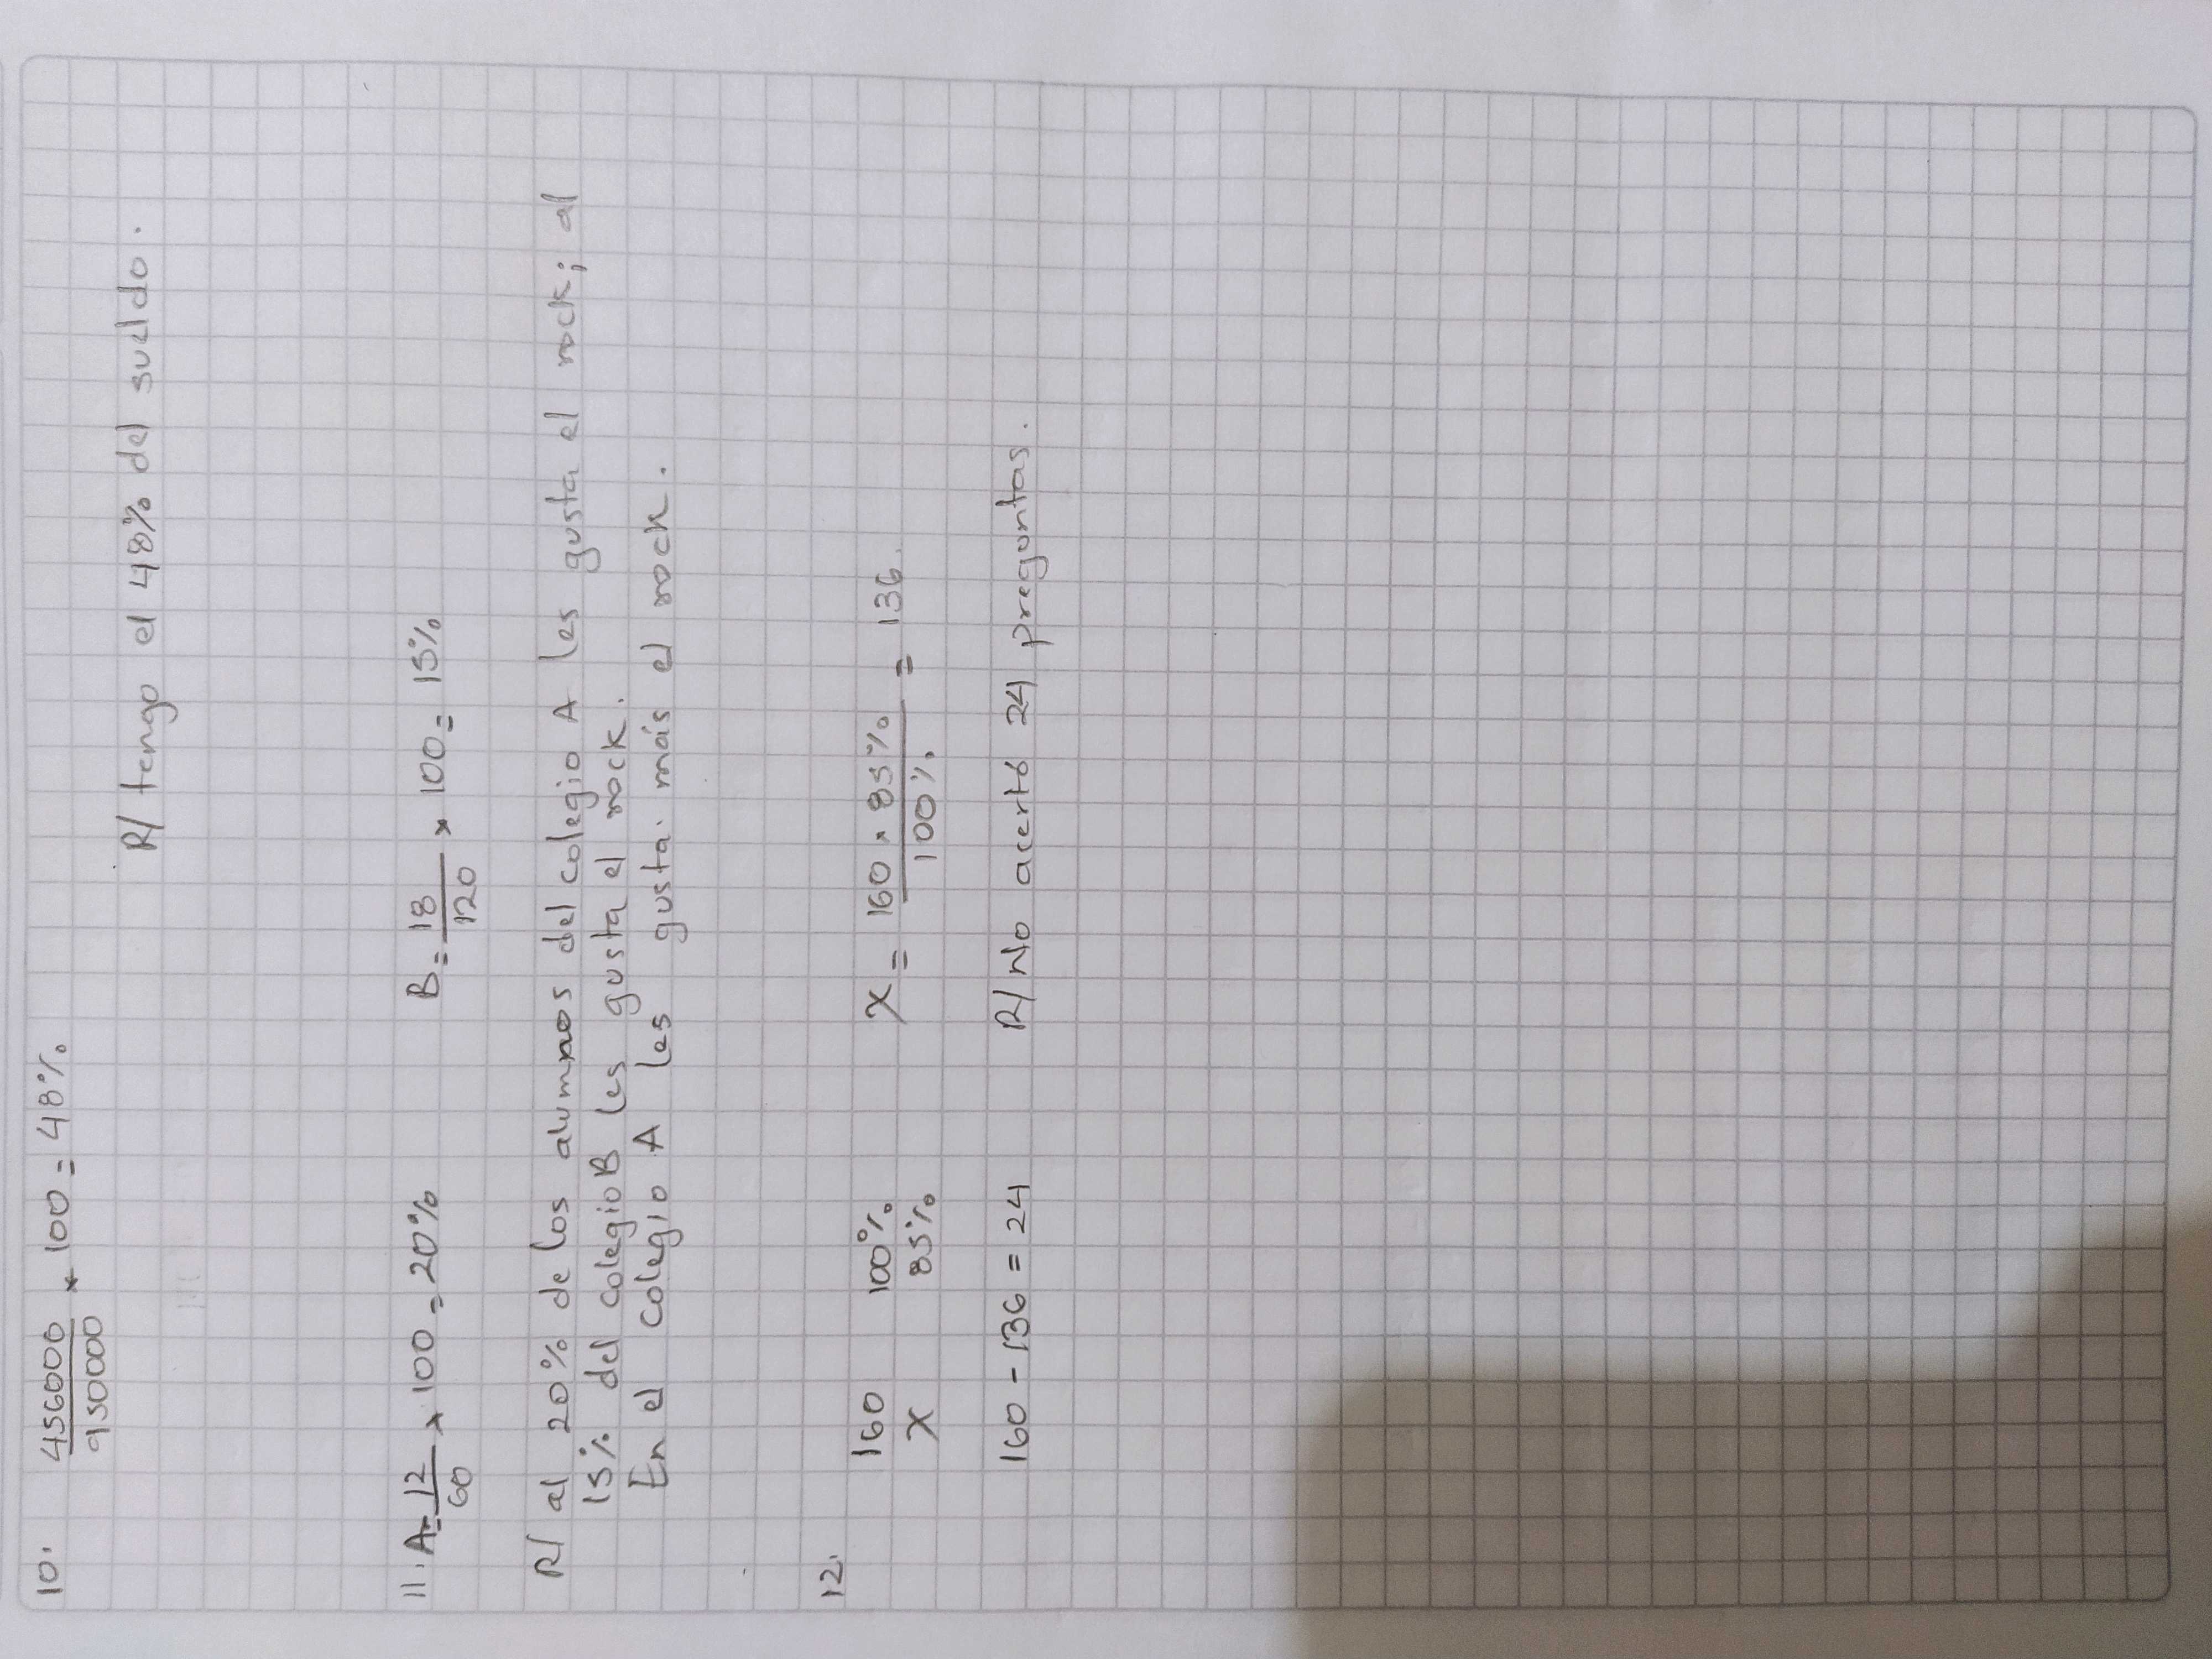 10. 456000/950000 × 100 = 48%
R/ tengo el 48% del sueldo.
11. A = 12/60 × 100 = 20% B = 18/120 × 100 = 15%
R/ al 20% de los alumnos del colegio A les gusta el rock; al
15% del colegio B les gusta el rock.
En el colegio A les gusta más el rock.
12.
160 100% X = 160 × 85%/100% = 136.
X 85%
160 - 136 = 24 R/ No acertó 24 preguntas.